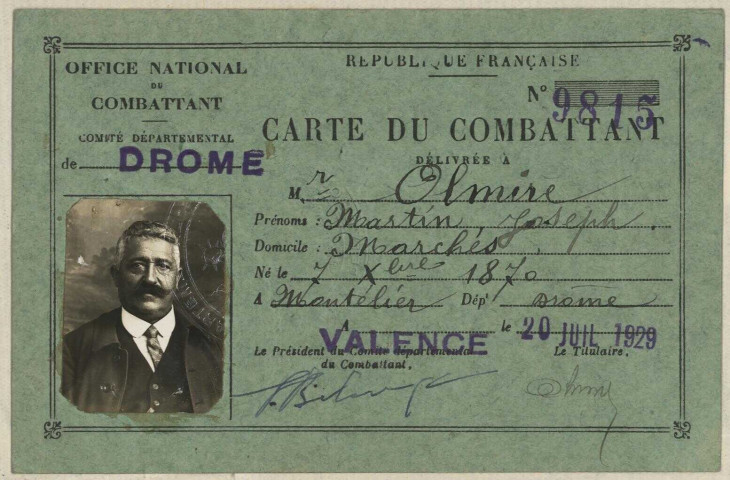 OFFICE NATIONAL
DU
COMBATTANT
COMITÉ DÉPARTEMENTAL
de DROME
RÉPUBLIQUE FRANÇAISE
N° 9815
CARTE DU COMBATTANT
DÉLIVRÉE À
Mr Olmire
Prénoms : Martin, Joseph.
Domicile : Marches.
Né le 7 Xbre 1870
A Montélier Dépt Drôme
A VALENCE le 20 JUIL 1929
Le Président du Comité départemental
du Combattant,
Le Titulaire,